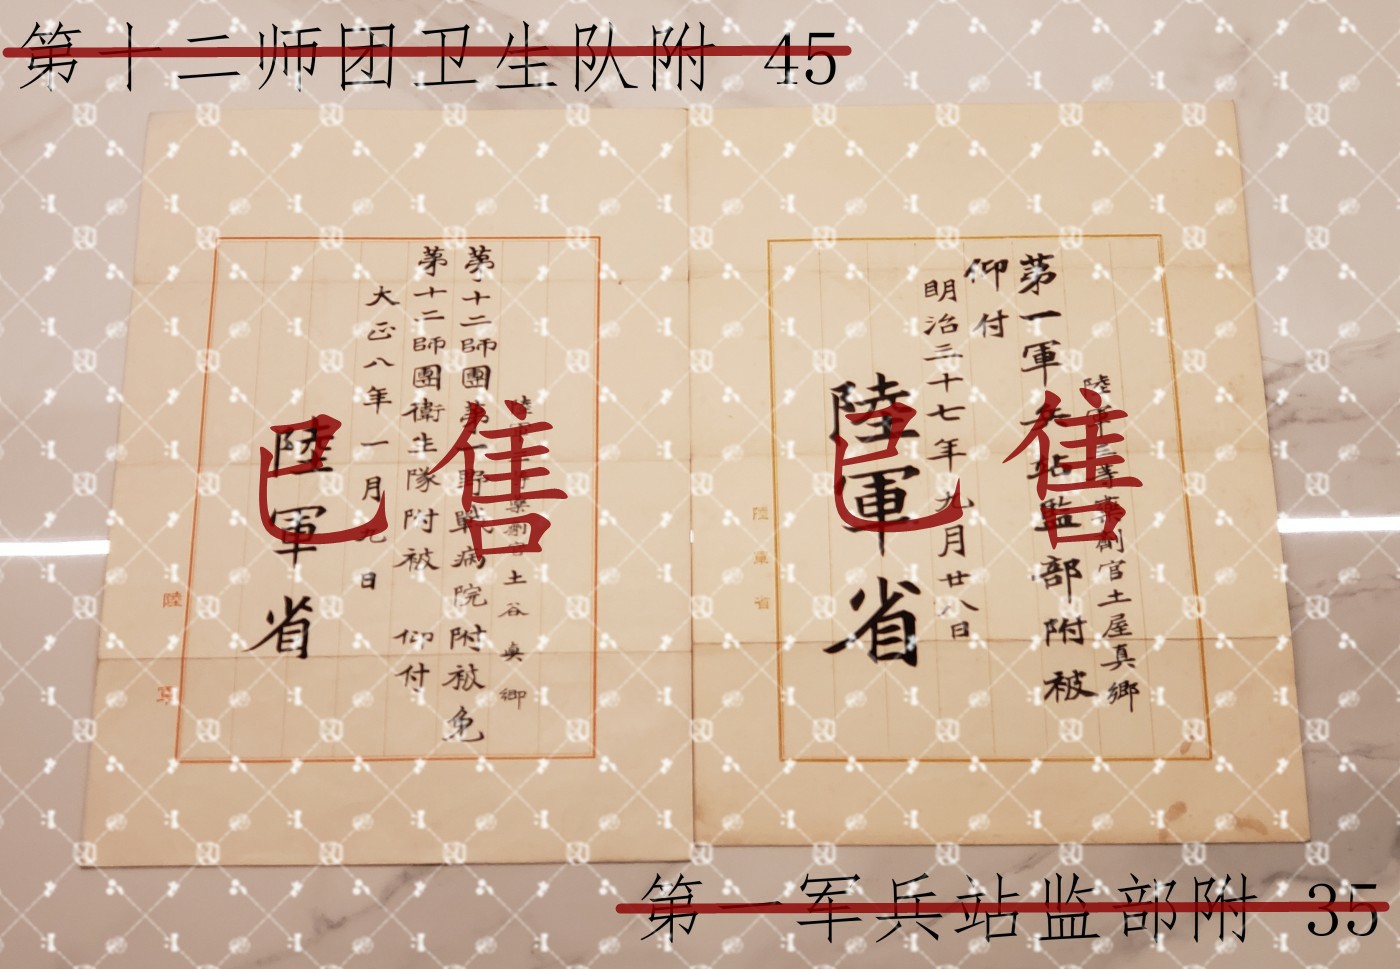 第十二师团卫生队附 45
土谷奥郷
第十二師團第一野戰病院附被免
第十二師團衛生隊附被仰付
大正八年一月九日
陸軍省
已售
陸
陸軍三等藥劑官土屋真郷
第一軍兵站監部附被
仰付
明治三十七年九月廿八日
陸軍省
已售
陸軍省
第一军兵站监部附 35